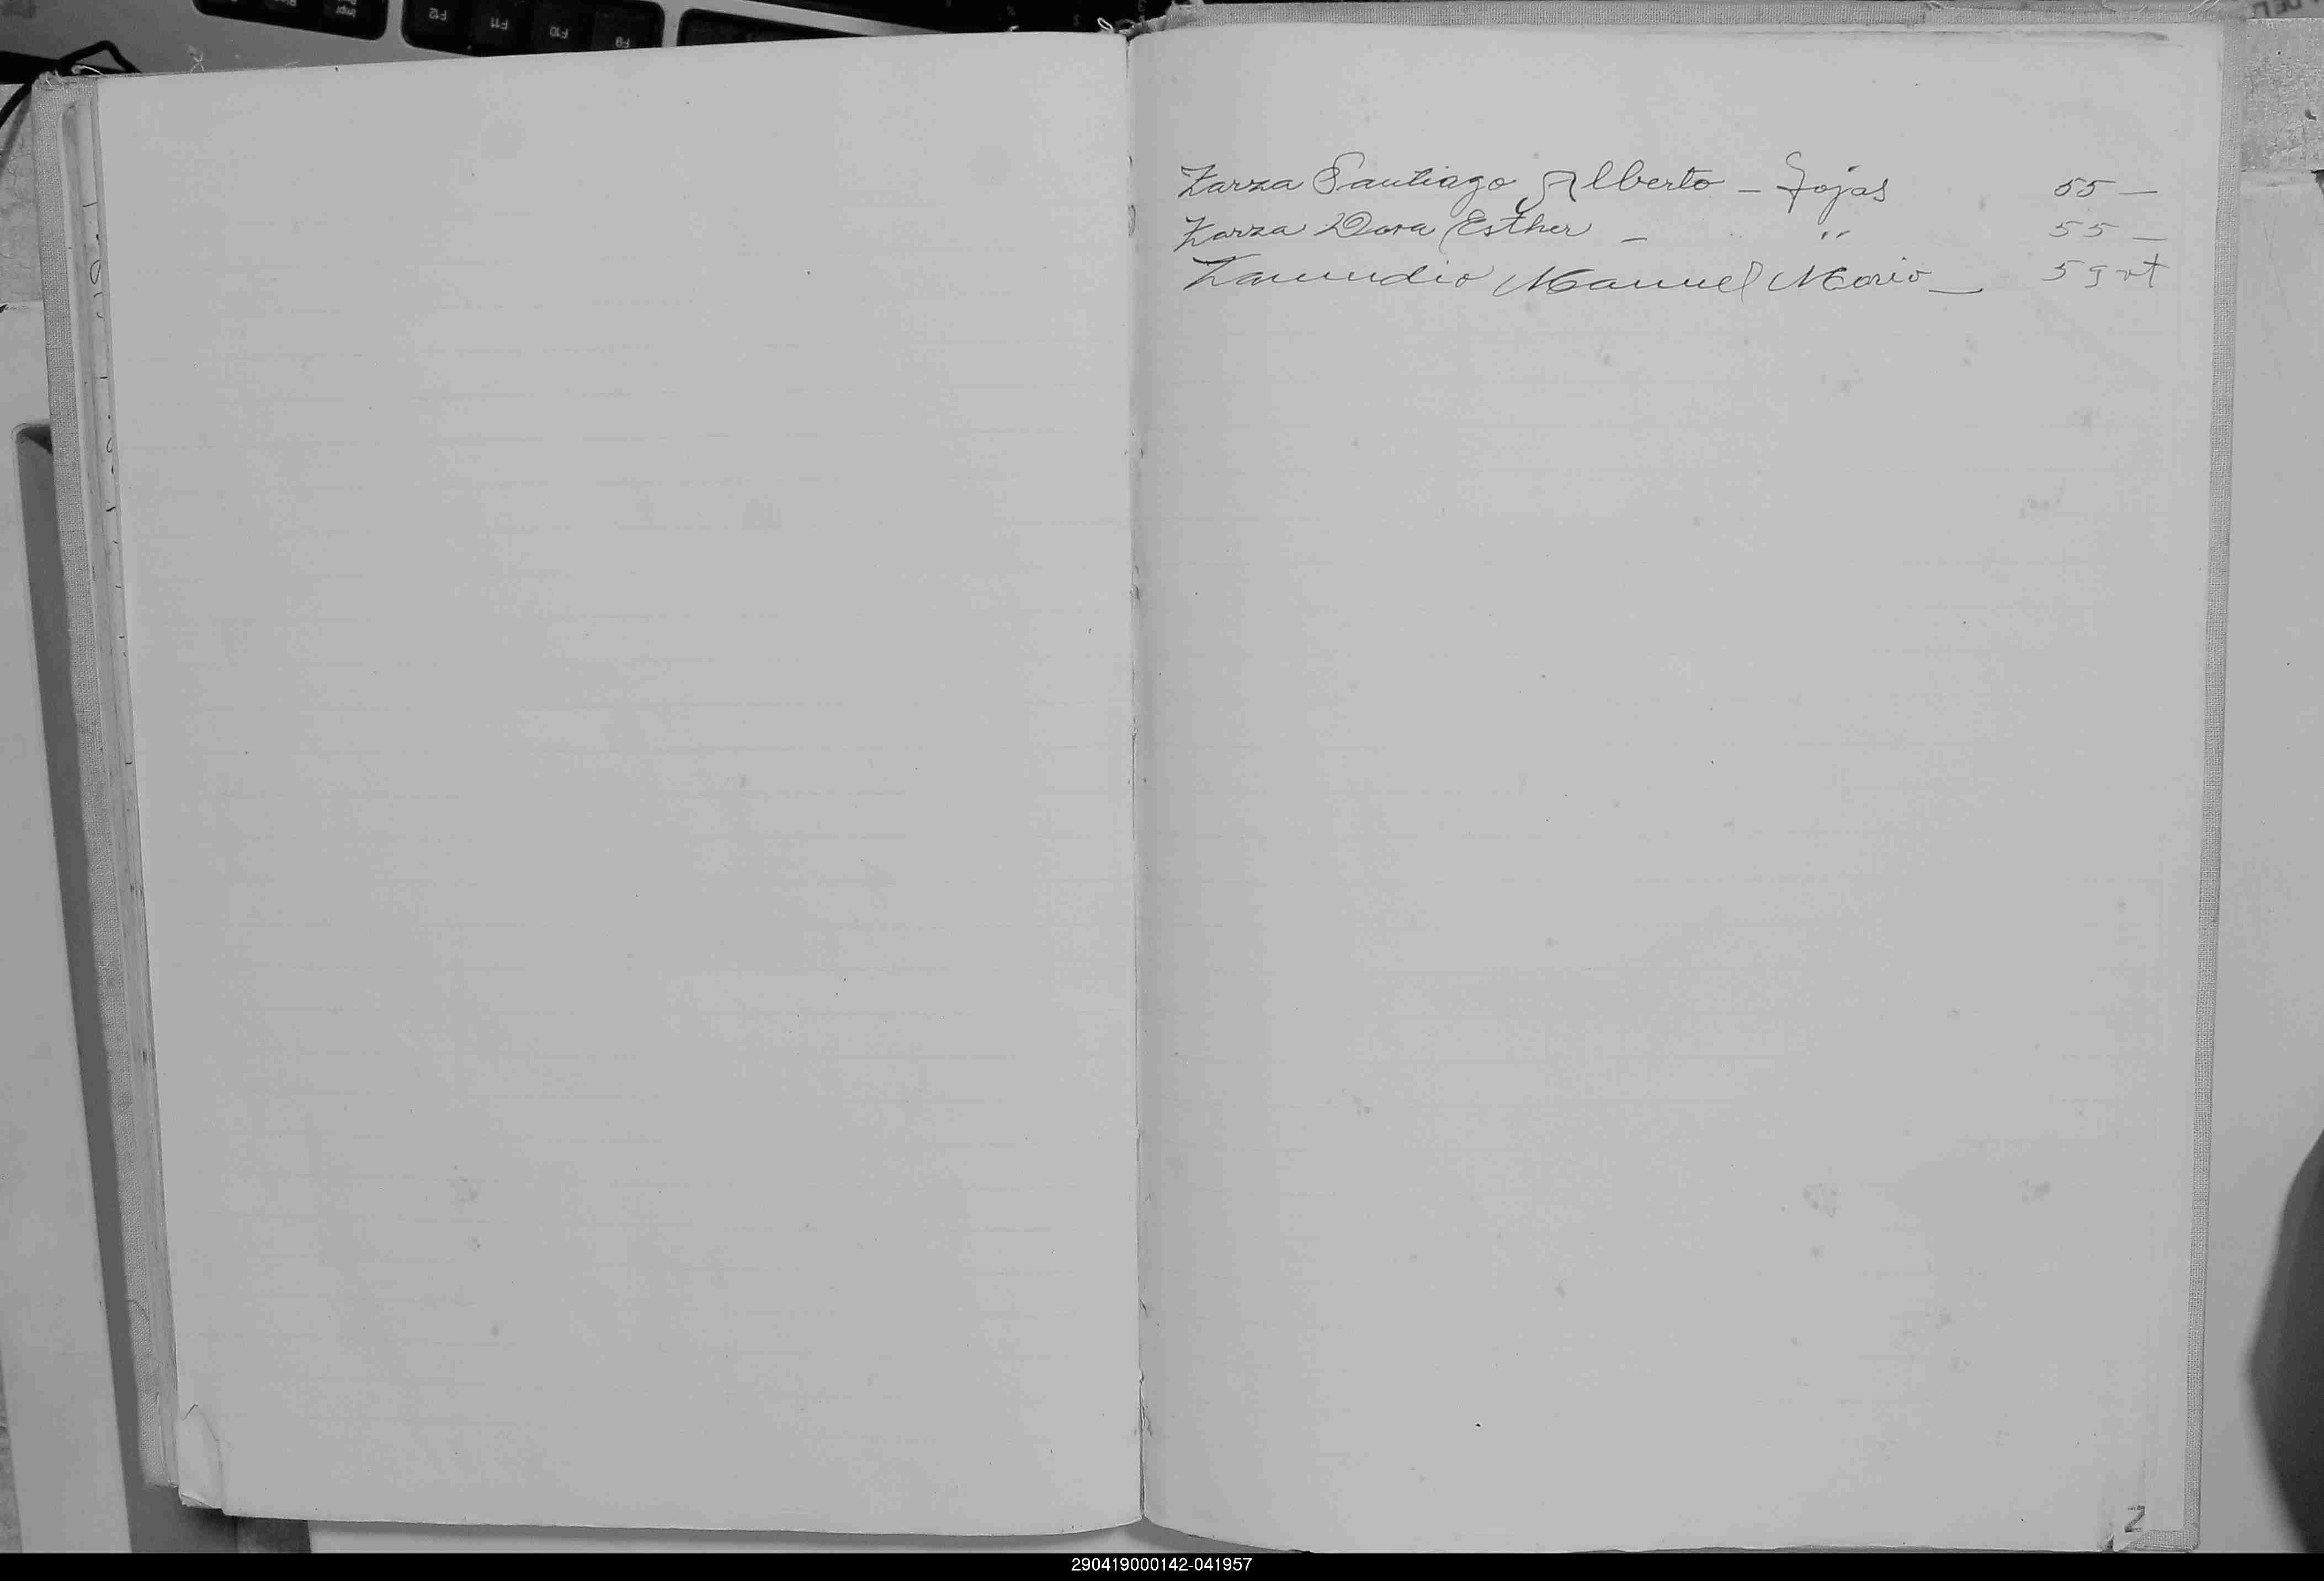 Zarza Santiago Alberto - Fojas 55 -
Zarza Dora Esther - " 55 -
Zamudio Manuel Mario - 59 vt
Z
290419000142-041957